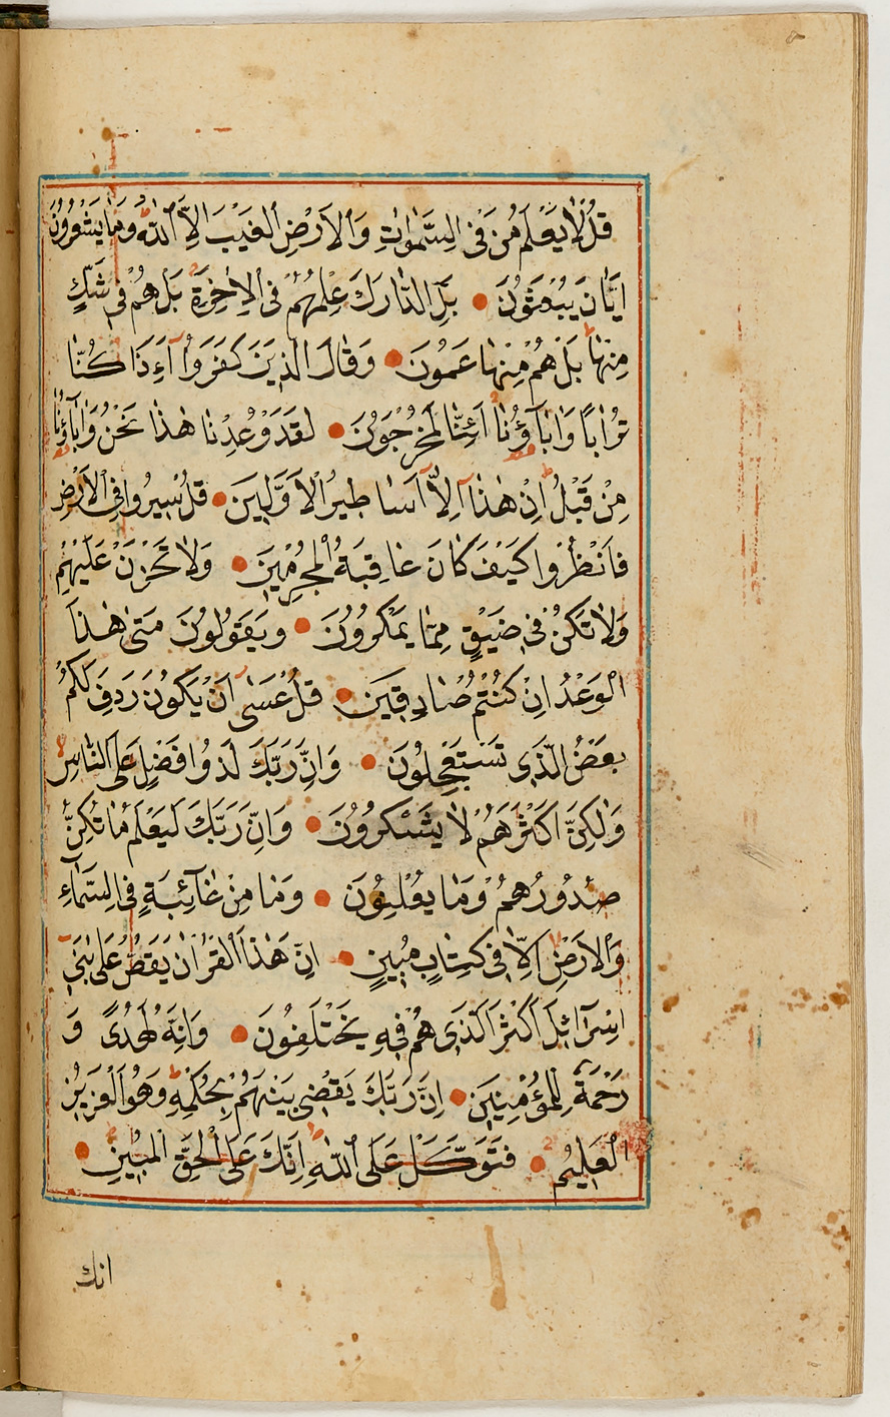 قُلْ لَا يَعْلَمُ مَنْ فِى السَّمٰوَاتِ وَالْاَرْضِ الْغَيْبَ اِلَّا اللّٰهُ وَمَا يَشْعُرُونَ
اَيَّانَ يُبْعَثُونَ بَلِ ادَّارَكَ عِلْمُهُمْ فِى الْاٰخِرَةِ بَلْ هُمْ فِى شَكٍّ
مِنْهَا بَلْ هُمْ مِنْهَا عَمُونَ وَقَالَ الَّذِينَ كَفَرُوا ءَاِذَا كُنَّا
تُرَابًا وَاٰبَآؤُنَا اَئِنَّا لَمُخْرَجُونَ لَقَدْ وُعِدْنَا هٰذَا نَحْنُ وَاٰبَآؤُنَا
مِنْ قَبْلُ اِنْ هٰذَا اِلَّا اَسَاطِيرُ الْاَوَّلِينَ قُلْ سِيرُوا فِى الْاَرْضِ
فَانْظُرُوا كَيْفَ كَانَ عَاقِبَةُ الْمُجْرِمِينَ وَلَا تَحْزَنْ عَلَيْهِمْ
وَلَا تَكُنْ فِى ضَيْقٍ مِمَّا يَمْكُرُونَ وَيَقُولُونَ مَتٰى هٰذَا
الْوَعْدُ اِنْ كُنْتُمْ صَادِقِينَ قُلْ عَسٰى اَنْ يَكُونَ رَدِفَ لَكُمْ
بَعْضُ الَّذِى تَسْتَعْجِلُونَ وَاِنَّ رَبَّكَ لَذُوا فَضْلٍ عَلَى النَّاسِ
وَلٰكِنَّ اَكْثَرَهُمْ لَا يَشْكُرُونَ وَاِنَّ رَبَّكَ لَيَعْلَمُ مَا تُكِنُّ
صُدُورُهُمْ وَمَا يُعْلِنُونَ وَمَا مِنْ غَآئِبَةٍ فِى السَّمَآءِ
وَالْاَرْضِ اِلَّا فِى كِتَابٍ مُبِينٍ اِنَّ هٰذَا الْقُرْاٰنَ يَقُصُّ عَلٰى بَنِى
اِسْرَآئِلَ اَكْثَرَ الَّذِى هُمْ فِيهِ يَخْتَلِفُونَ وَاِنَّهُ لَهُدًى وَ
رَحْمَةٌ لِلْمُؤْمِنِينَ اِنَّ رَبَّكَ يَقْضِى بَيْنَهُمْ بِحُكْمِهِ وَهُوَ الْعَزِيزُ
الْعَلِيمُ فَتَوَكَّلْ عَلَى اللّٰهِ اِنَّكَ عَلَى الْحَقِّ الْمُبِينِ
انك